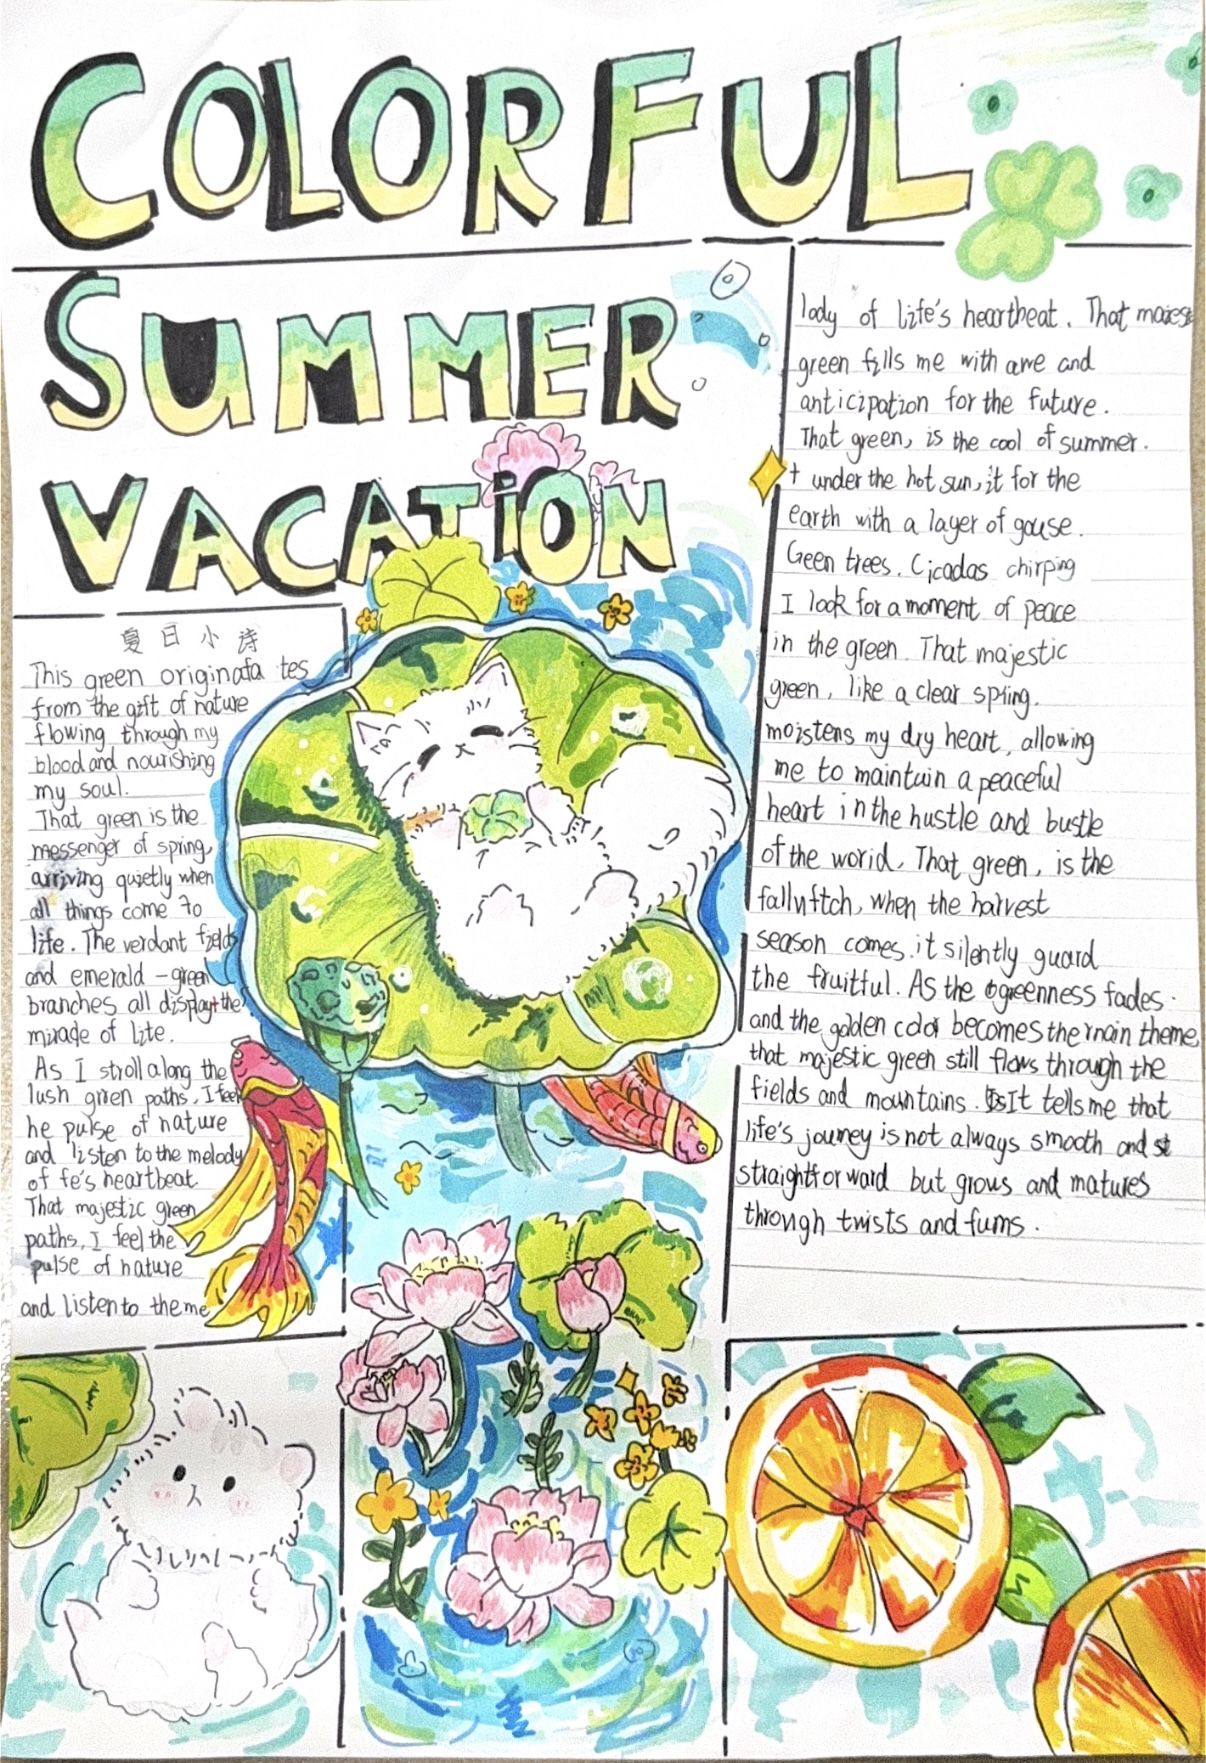 COLORFUL
SUMMER
VACATION
夏日小诗
This green originafa tes
from the gift of nature
flowing through my
blood and nourishing
my soul.
That green is the
messenger of spring,
arriving quietly when
all things come to
life. The verdant fields
and emerald-green
branches all display the
mirade of lite.
As I stroll along the
lush green paths, I feel
he pulse of nature
and listen to the melody
of fe's heartbeat
That majestic green
paths, I feel the
pulse of nature
and listen to the me
lody of life's heartbeat. That majest
green fills me with awe and
anticipation for the future.
That green, is the cool of summer.
t under the hot sun, it for the
earth with a layer of gouse.
Geen trees. Cicadas chirping
I look for a moment of peace
in the green. That majestic
green, like a clear spring.
moistens my dry heart, allowing
me to maintain a peaceful
heart in the hustle and bustle
of the world. That green, is the
when the harvest
season comes. it silently guard
the fruitful. As the greenness fades.
and the golden color becomes the main theme,
that majestic green still flows through the
fields and mountains. It tells me that
life's journey is not always smooth and st
straightforward but grows and matures
through twists and fums.